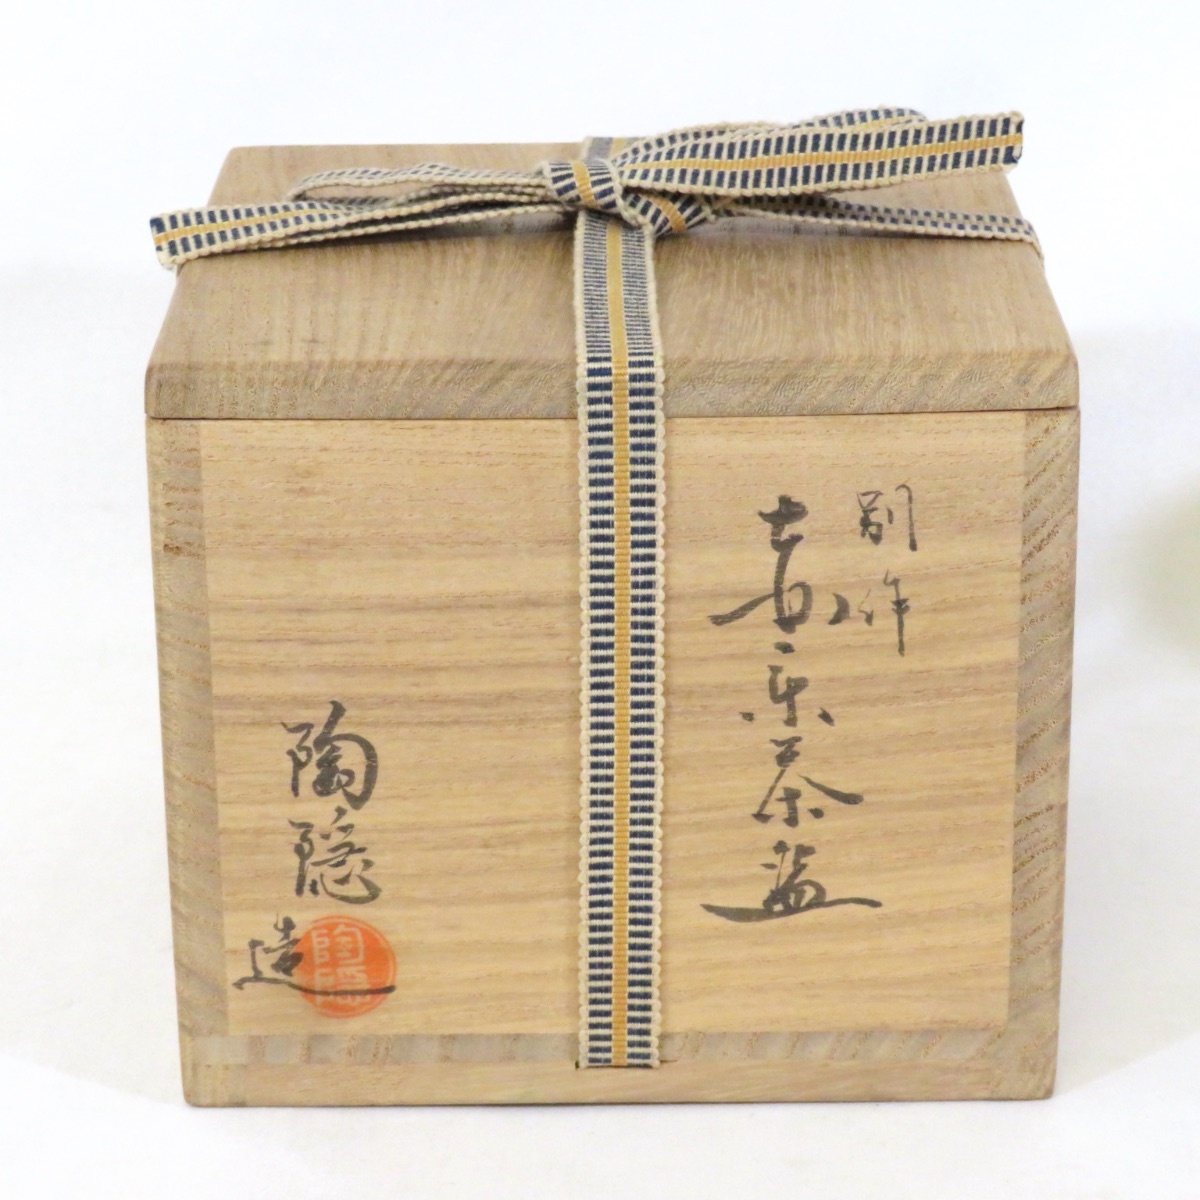 別作
青楽茶盌
陶隠
造
陶隠